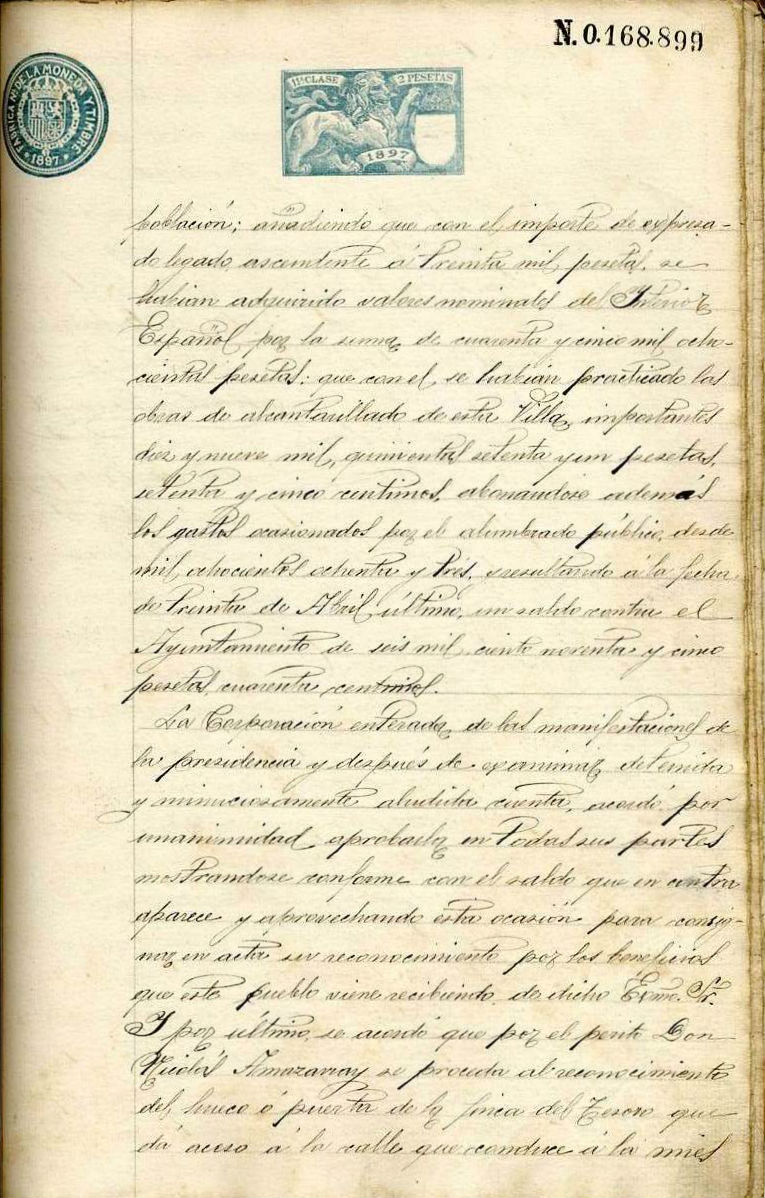 N. 0.168.899
FÁBRICA Nal. DE LA MONEDA Y TIMBRE
1897
11ª CLASE 2 PESETAS
1897
población; añadiendo que con el importe de expresa-
do legado, ascendente á treinta mil pesetas, se
habían adquirido valores nominales del Interior
Español por la suma de cuarenta y cinco mil ocho-
cientas pesetas; que con el, se habían practicado las
obras de alcantarillado de esta Villa, importantes
diez y nueve mil, quinientas setenta y un pesetas,
setenta y cinco centimos, abonandose además
los gastos ocasionados por el alumbrado público, desde
mil ochocientos ochenta y tres, y resultando á la fecha
de treinta de Abril último, un saldo contra el
Ayuntamiento de seis mil ciento noventa y cinco
pesetas cuarenta centimos.
La Corporación enterada de las manifestaciones de
la presidencia y después de examinar detenida
y minuciosamente aludida cuenta, acordó por
unanimidad aprobarla en todas sus partes
mostrandose conforme con el saldo que en contra
aparece y aprovechando esta ocasión para consig-
nar en acta su reconocimiento por los beneficios
que este pueblo viene recibiendo de dicho Exmo. Sr.
Y por último, se acordó que por el perito Don
Nicolás Amazarray se proceda al reconocimiento
del hueco ó puerta de la finca del Tesoro que
dá aceso á la calle que conduce á la mies